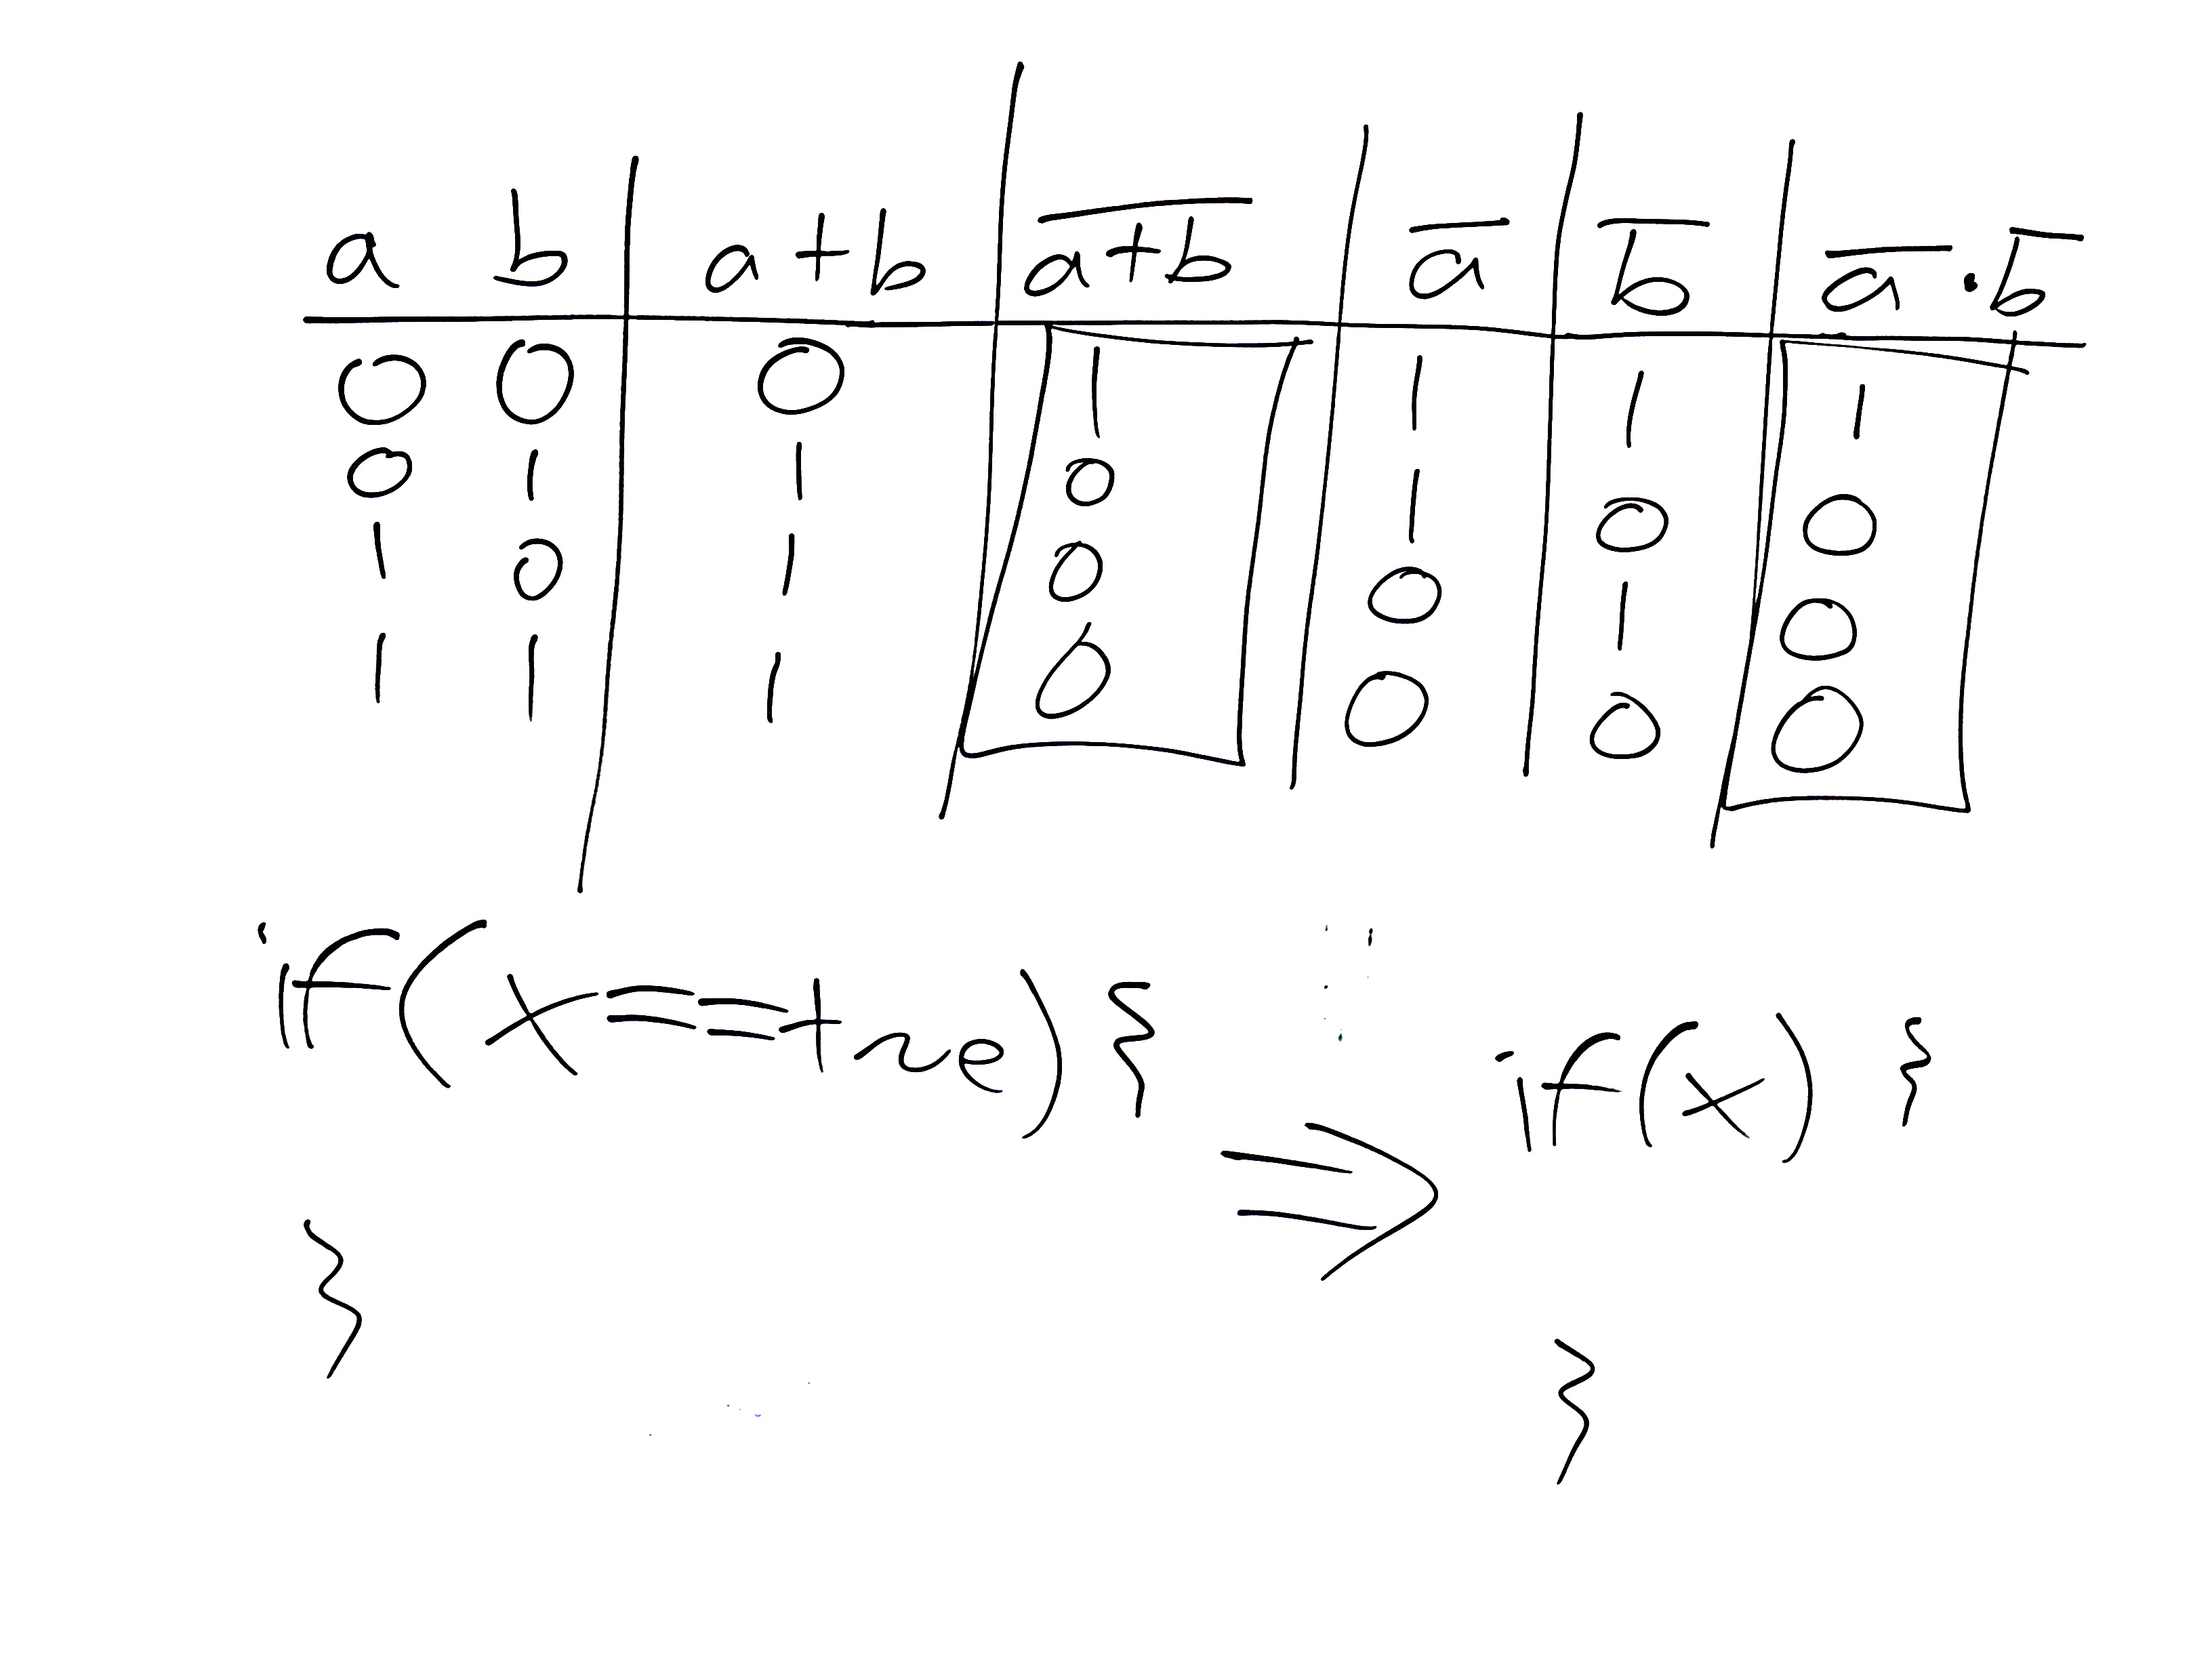 a b a+b a̅+̅b̅ a̅ b̅ a̅·b̅
0 0 0 1 1 1 1
0 1 1 0 1 0 0
1 0 1 0 0 1 0
1 1 1 0 0 0 0
if(x==true){
}
⇒
if(x) {
}